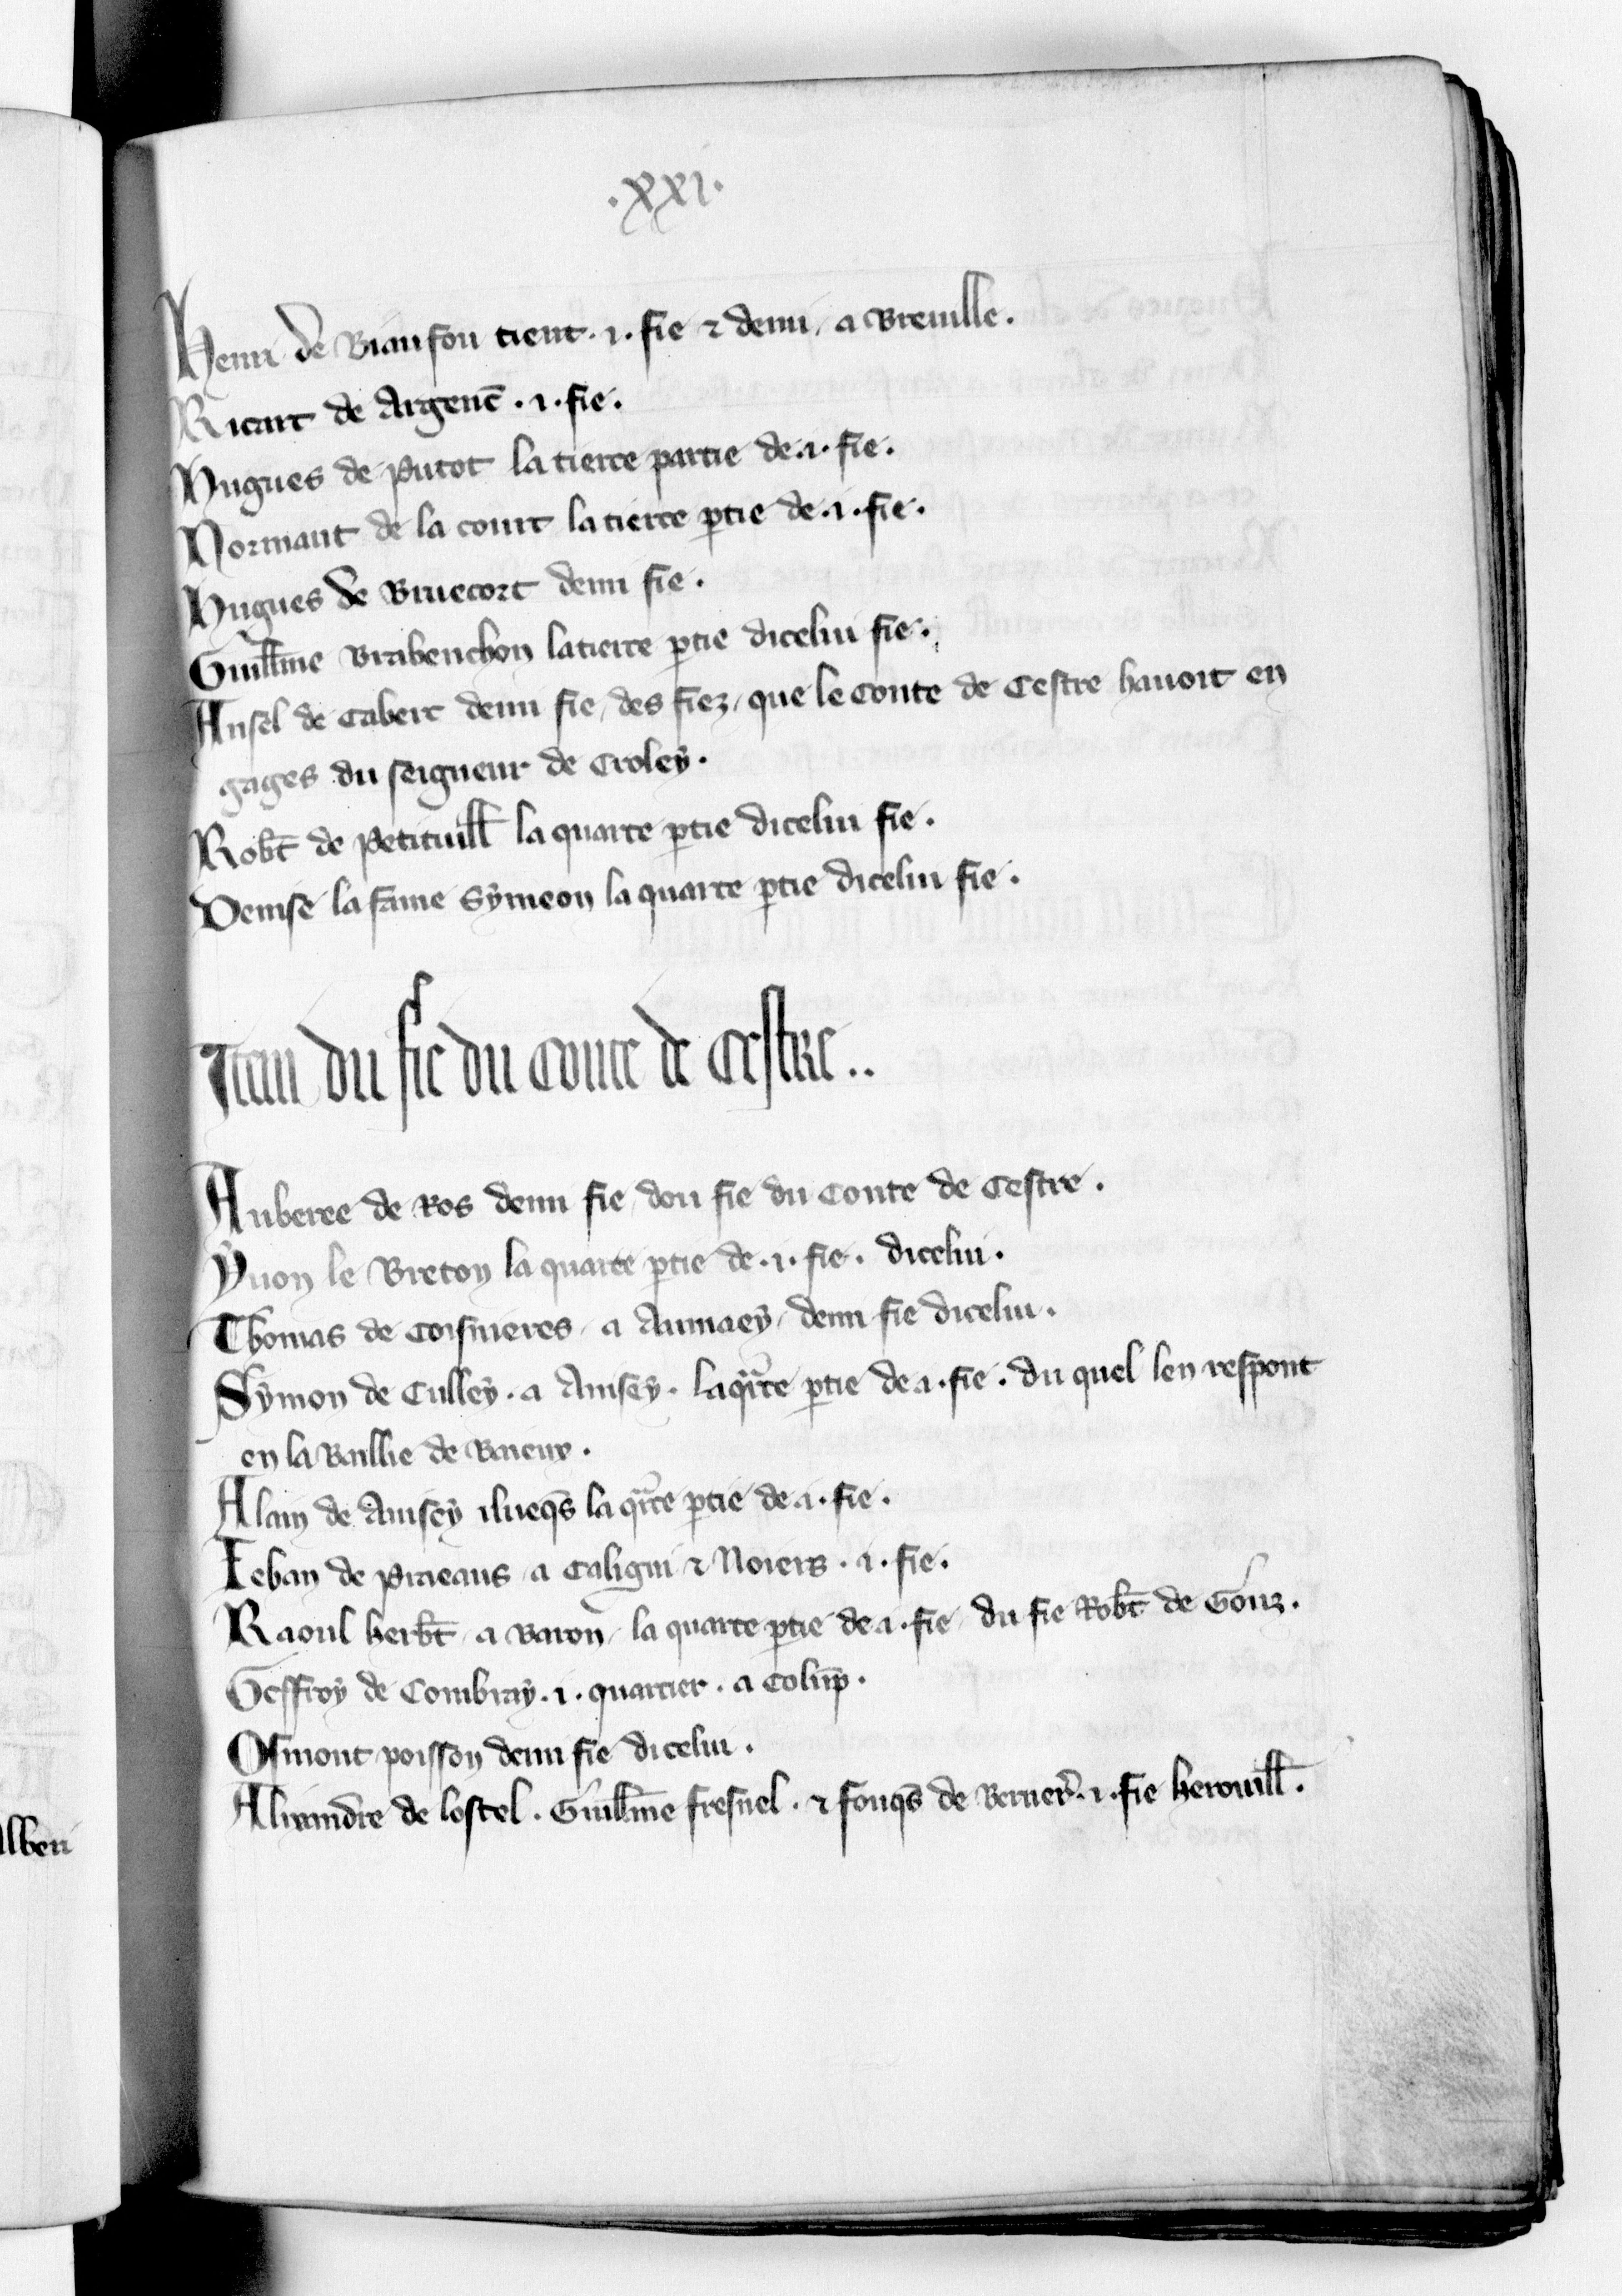 .xxi.
Henri de Biaufou tient .i. fie & demi a Breuille.
Ricart de Argenc̄ .i. fie.
Hugues de Putot la tierce partie de .i. fie.
Normant de la court la tierce ꝑtie de .i. fie.
Hugues de Bruecort demi fie.
Guill̄me Brabenchon la tierce ꝑtie dicelui fie.
Ansel de Cabert demi fie des fiez que le Conte de Cestre havoit en
gages du seigneur de Croley.
Rob̄t de Petituill̄ la quarte ꝑtie dicelui fie.
Denise la fame Symeon la quarte ꝑtie dicelui fie.
Item du fie du Conte de Cestre..
Auberee de Ros demi fie dou fie du Conte de Cestre.
Yuon le Breton la quarte ꝑtie de .i. fie. dicelui.
Thomas de Coisnieres a Aunaey demi fie dicelui.
Symon de Culley. a Anisey. la qͣrte ꝑtie de .i. fie. du quel len respont
en la Baillie de Baieux.
Alain de Anisey ilueq̄s la qͣrte ꝑtie de .i. fie.
Iehan de Praeaus a Caligni & Noiers. .i. fie.
Raoul herb̄t a Baron la quarte ꝑtie de .i. fie du fie Rob̄t de Gouz.
Geffroy de Combray .i. quartier. a Colūp̄.
Osmont poisson demi fie dicelui.
Alixandre de lostel. Guill̄me fresnel. & fouq̄s de Berner̄ .i. fie herouill̄.
lberi